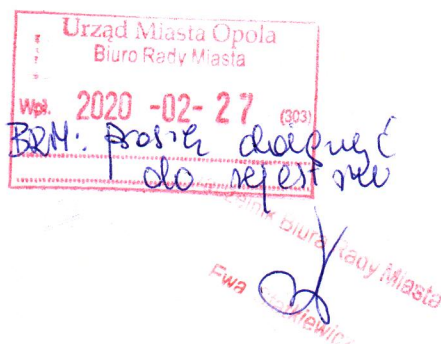 Urząd Miasta Opola
Biuro Rady Miasta
Wpł. 2020 -02- 27 (303)
BRM: proszę
do rejestru
Biura Rady Miasta
Ewa